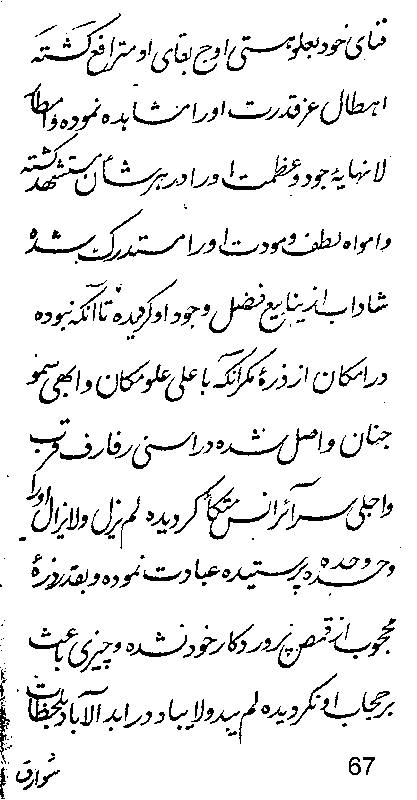 فنای خود بعلو هستی اوج بقای او مترافع گشته
اهطال عز قدرت اورا مشاهده نموده وامطار
لانهایهٔ جود وعظمت اورا در هر شأن مستشهد گشته
وامواه لطف ومودت اورا مستدرک شده
شاداب از ینابیع فضل وجود او گردیده تا آنکه نبوده
در امکان از ذرهٔ مگر آنکه باعلی علو مکان وابهی سمو
جنان واصل شده در اسنی رفارف قرب
واجلی سرائر انس متکأ گردیده لم یزل ولایزال اورا
وحده وحده پرستیده عبادت نموده وبقدر ذرهٔ
محجوب از قمص پروردکار خود نشده وچیزی باعث
بر حجاب او نگردیده لم یبد ولایباد در ابد الآباد بلحظات
شوارق
67